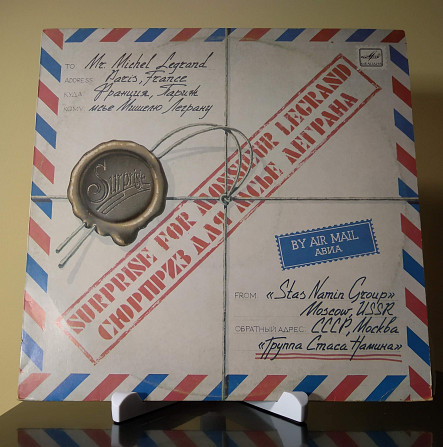 TO: Mr. Michel Legrand
ADDRESS: Paris, France
КУДА: Франция, Париж
КОМУ: мсье Мишелю Леграну
Surprise
SURPRISE FOR MONSIEUR LEGRAND
СЮРПРИЗ ДЛЯ МСЬЕ ЛЕГРАНА
BY AIR MAIL
АВИА
FROM: «Stas Namin Group»
Moscow, USSR
ОБРАТНЫЙ АДРЕС: СССР, Москва
«Группа Стаса Намина»